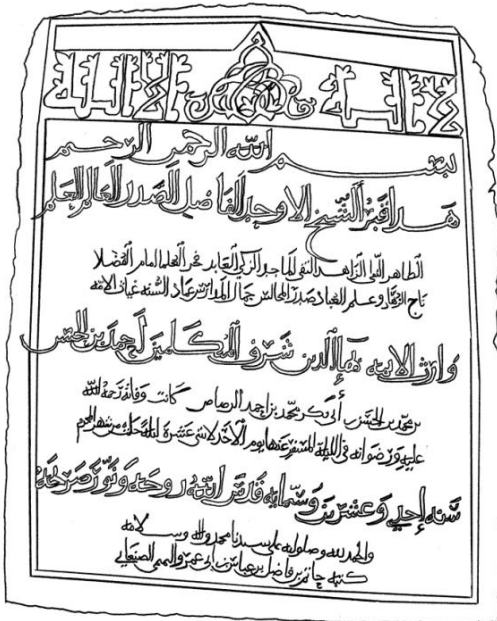 لا اله الا الله
بسم الله الرحمن الرحيم
هذا قبر الشيخ الاوحد الفاضل الصدر العالم العلم
الطاهر النقي الزاهد التقي الماجد الزكي العابد فخر العلما امام الفضلا
تاج الزهاد وعلم العباد صدر المجالس جمال عماد السنه غياث الامه
وارث الايمه بها الدين شرف المتكلمين احمد بن الحسن
بن محمد بن الحسن بن أبي بكر محمد بن احمد الرصاص كانت وفاته رحمة الله
عليه ورضوانه في الليلة المسفر عنها يوم الاحد لاثنتي عشرة ليلة خلت من شهر المحرم
سنه إحدى وعشرين وستمايه قدس الله روحه ونور ضريحه
والحمد لله وصلواته على سيدنا محمد واله وسلامه
كتبه حاتم بن فاضل بن عباس بن ابي عمرو الصنعاني